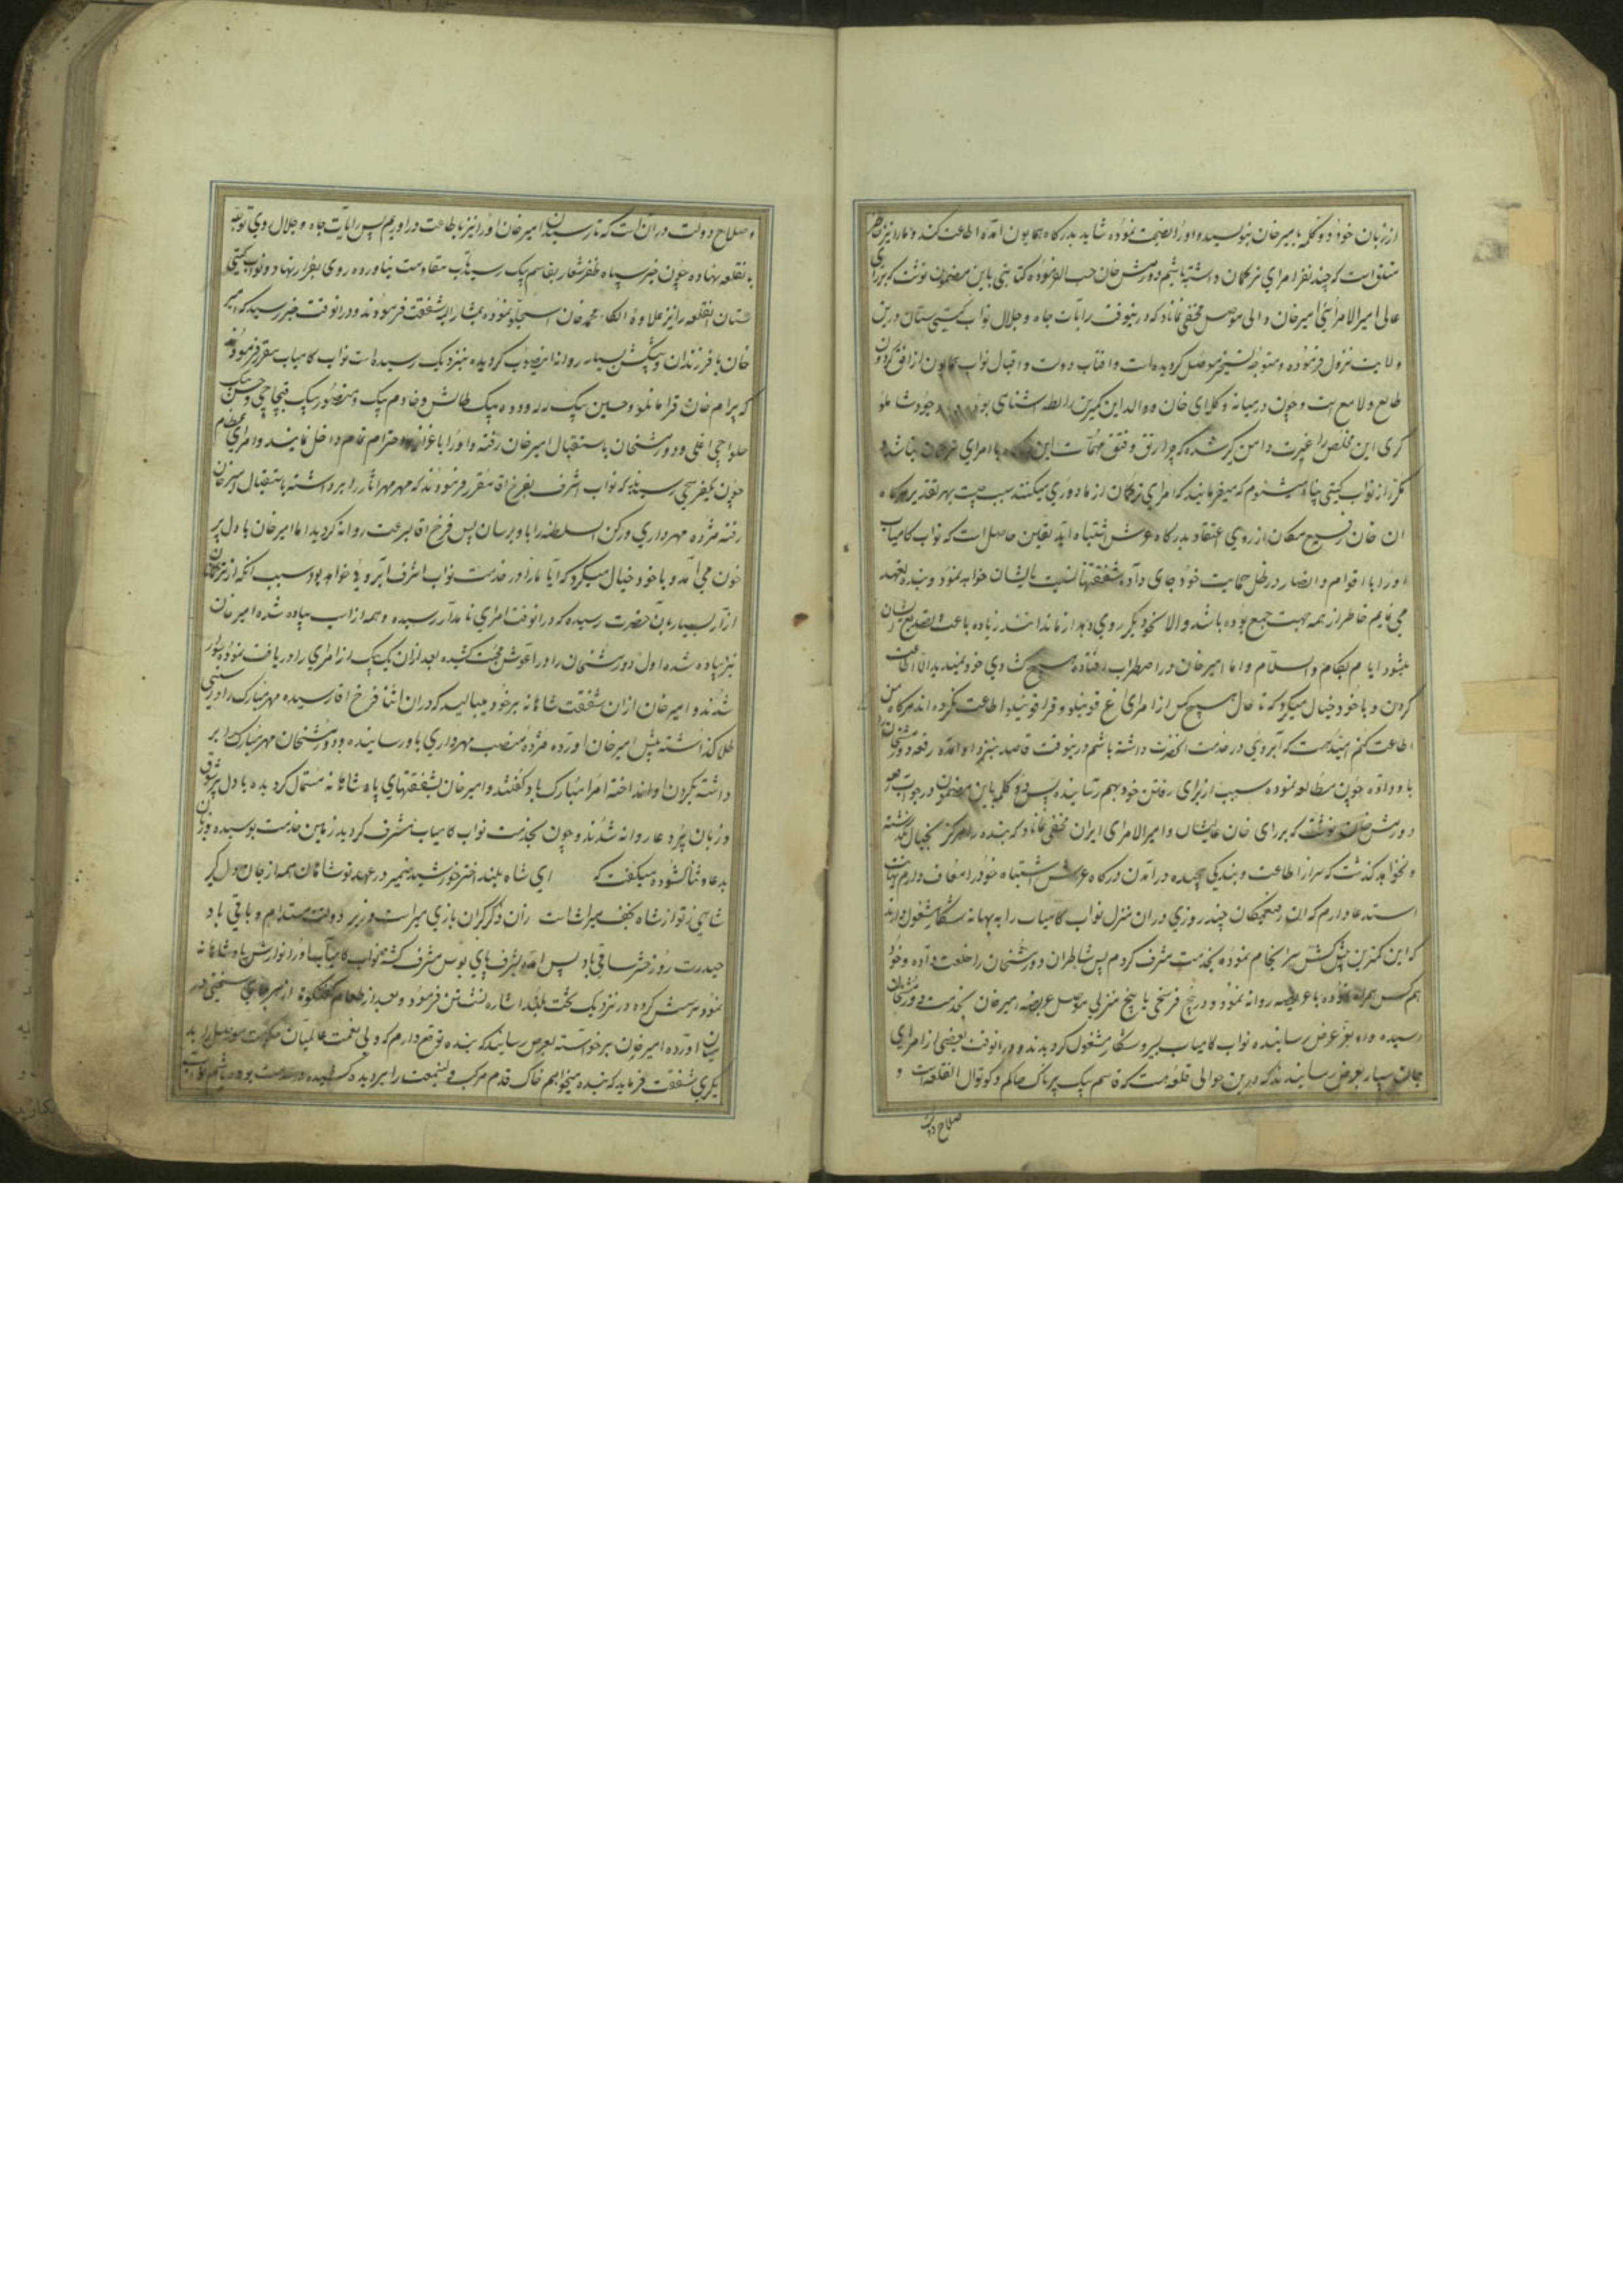 از زبان خود دو کلمه بامیر خان بنویسید و او را نصیحت نموده شاید بدرگاه همایون آمده اطاعت کند و ما را نیز خاطر
متعلق است که چند نفر امرای ترکمان داشته باشیم دورمش خان حسب الفرموده کتابتی باین مضمون نوشت که برای
عالی امیر الامرائی امیر خان والی موصل مخفی نماناد که درینوقت رایات جاه و جلال نواب گیتی ستان درین
ولایت نزول فرموده و متوجه تسخیر موصل گردیده است و آفتاب دولت و اقبال نواب همایون از افق گردون
طالع و لامع است و چون در میانه وکلای خان و والد این کمترین رابطه آشنای بود
کری این مخلص را غیرت دامن گیر شده که چرا رتق و فتق مهمات این با امرای ترکمان نباشد و
مکرر از نواب گیتی پناه میشنوم که میفرمایند که امرای ترکمان از ما دوری میکنند سبب چیست بهر تقدیر هرگاه
آن خان فسیح مکان از روی اعتقاد بدرگاه عرش اشتباه آید یقین حاصل است که نواب کامیاب
او را با اقوام و انصار در ظل حمایت خود جای داده شفقتها نسبت بایشان خواهد نمود و بنده تعهد
می نمایم خاطر از همه جهت جمع بوده باشد والا نحو دیگر روی دهد از ما ندانند زیاده باعث تصدیع ایشان
میشود ایام بکام والسلام و اما امیر خان در اضطراب افتاده هیچ شادی خود نمیدید
کردن و با خود خیال میکرد که تا حال هیچ کس از امرای آغ قوینلو و قرا قوینلو اطاعت نکرده اند هرگاه من
اطاعت کنم البته جهت که آبروئی در خدمت آنحضرت داشته باشم درینوقت قاصد بنزد او آمده رقعه دورمشخانرا
باو داده چون مطالعه نموده سبب از برای رفتن خود بهم رسانیده پس دو کلمه باین مضمون در جواب
دورمش خان نوشت که برای خان عالیشان و امیر الامرای ایران مخفی نماناد که بنده را هرگز بخیال نگذشته
و نخواهد گذشت که سر از اطاعت و بندگی پیچیده در آمدن درگاه عرش اشتباه خود را معاف دارم نهایت
استدعا دارم که چند روزی در آن منزل نواب کامیاب را به بهانه شکار مشغول دارند
که این کمترین پیشکش سرانجام نموده بخدمت مشرف گردم پس شاطران دورمشخان را خلعت داده و خود
هم کس همراه نموده با عریضه روانه نمود و در پنج فرسخی با پنج منزلی موصل عریضه امیر خان بخدمت دورمشخان
رسیده و او بعز عرض رسانیده نواب کامیاب بسیر و شکار مشغول گردیدند و در آنوقت بعضی از امرای
جان سپار بعرض رسانیدند که درین حوالی قلعه هست که قاسم بیک پرناک حاکم و کوتوال آنقلعه است و
صلاح دولت
و صلاح دولت در آن است که تا رسیدن امیر خان او را نیز باطاعت در آوریم پس رایات جاه و جلال روی توجه
بانقلعه نهاده چون خبر سپاه ظفر شعار بقاسم بیک رسید تاب مقاومت نیاورده روی بفرار نهاد و نواب گیتی
ستان آنقلعه را نیز علاوه الکاء محمد خان استاجلو نموده بمشار الیه شفقت فرمودند و در آنوقت خبر رسید که امیر
خان با فرزندان و پیشکش بسیار روانه اینصوب گردیده بنزدیک رسیده است نواب کامیاب مقرر فرمودند
که بیرام خان قرامانلو و حسین بیک لله و دده بیک طالش و خادم بیک و منصور بیک قپچاچی و حسن بیک
حلواچی اغلی و دورمشخان باستقبال امیر خان رفته و او را باعزاز و احترام تمام داخل نمایند و امرای عظام
چون بیکفرسخی رسیدند که نواب اشرف بفرخ آقا مقرر فرمودند که مهر مهر آثار را برداشته باستقبال امیر خان
رفته مژده مهرداری و رکن السلطنه را باو برسان پس فرخ آقا بسرعت روانه گردید اما امیر خان با دل پر
خون می آمد و با خود خیال میکرد که آیا ما را در خدمت نواب اشرف آبروئی خواهد بود سبب آنکه از ترکمانان
آزار بسیار بآن حضرت رسیده که در آنوقت امرای نامدار رسیده و همه از اسب پیاده شده امیر خان
نیز پیاده شده اول دورمشخان را در آغوش محبت کشیده بعد از آن یک یک از امرای را دریافت نموده سوار
شدند و امیر خان از آن شفقت شاهانه بر خود میبالید که در آن اثنا فرخ آقا رسیده مهر مبارک را در سینی
طلا گذاشته پیش امیر خان آورده مژده منصب مهرداری باو رسانیده و دورمشخان مهر مبارک را بر
داشته بگردن او انداخته امرا مبارک باد گفتند و امیر خان بشفقتهای پادشاهانه مستمال گردیده با دل پر شوق
و زبان پر دعا روانه شدند و چون بخدمت نواب کامیاب مشرف گردید زمین خدمت بوسیده و زبان
بدعا و ثنا گشوده میگفت که ای شاه بلند اختر خورشید ضمیر در عهد تو شاهان همه از جان دل گیر
شاهی ز تو از شاه نجف میراث است
حیدرت روز حشر ساقی باد پس آمده بشرف پای بوس مشرف گشته نواب کامیاب او را نوازش پادشاهانه
نموده پرسش کرده در نزدیک تخت بلند اشاره نشستن فرمود و بعد از طعام گفتگوی از هر جای سخنی در
میان آورده امیر خان برخواسته بعرض رسانید که بنده توقع دارم که ولی نعمت عالمیان حکومت موصل را به
دیگری شفقت فرماید که بنده میخواهم خاک قدم مرکب ولینعمت را بر دیده کشیده در خدمت بوده باشم نواب